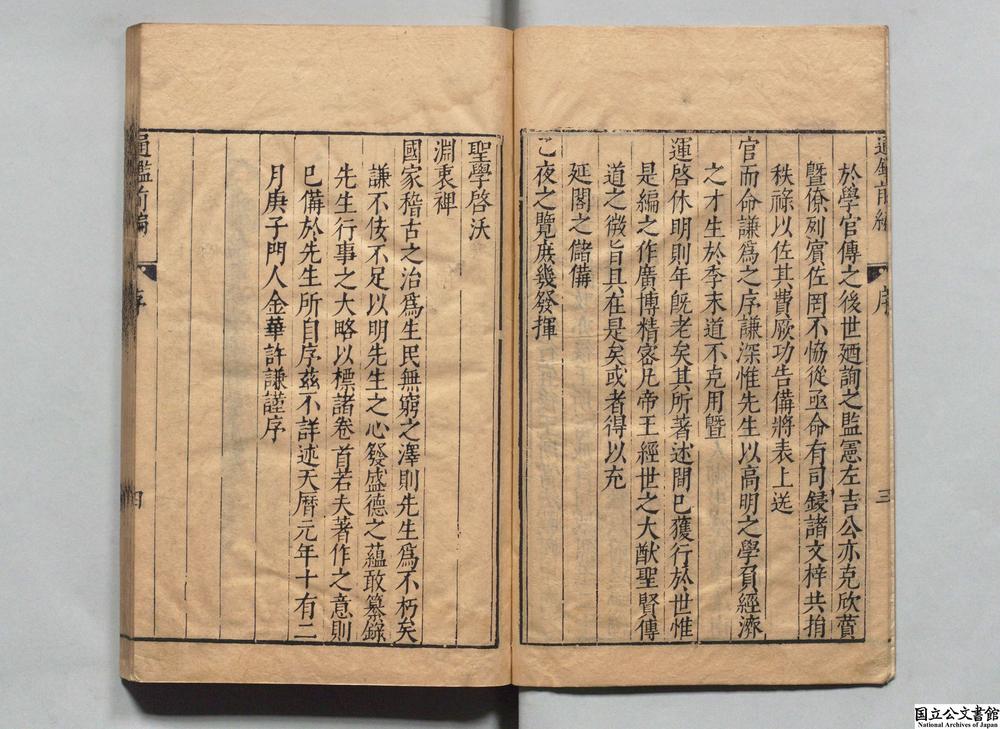 通鑑前編
序
三
於學官傳之後世廼詢之監憲左吉公亦克欣賛
曁僚列賓佐罔不恊從亟命有司鋟諸文梓共捐
秩祿以佐其費厥功告備將表上送
官而命謙爲之序謙深惟先生以高明之學負經濟
之才生於季末道不克用曁
運啓休明則年旣老矣其所著述間已獲行於世惟
是編之作廣博精宻凡帝王經世之大猷聖賢傳
道之微旨具在是矣或者得以充
延閣之儲備
乙夜之覽庻幾發揮
聖學啓沃
淵衷裨
國家稽古之治爲生民無窮之澤則先生爲不朽矣
謙不佞不足以明先生之心發盛德之蘊敢纂錄
先生行事之大略以標諸卷首若夫著作之意則
已備於先生所自序兹不詳述天曆元年十有二
月庚子門人金華許謙謹序
通鑑前編
序
四
国立公文書館
National Archives of Japan